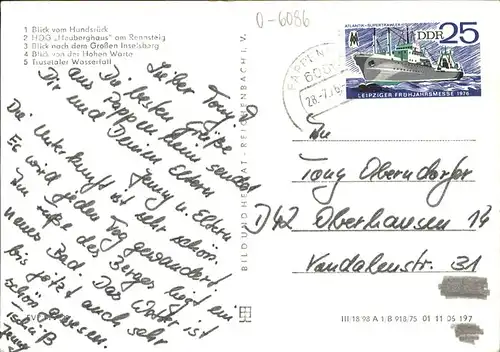 1 Blick vom Hundsrück
2 HDG „Heuberghaus" am Rennsteig
3 Blick nach dem Großen Inselsberg
4 Blick von der Hohen Warte
5 Trusetaler Wasserfall
0-6086
ATLANTIK-SUPERTRAWLER
DDR 25
LEIPZIGER FRÜHJAHRSMESSE 1976
28.-7.76
Lieber Tony!
Die besten Grüße
aus Pappenheim sendet
Dir und Deinen Eltern
Jenny u. Eltern
Die Unterkunft ist sehr schön.
Es wird jeden Tag gewandert.
Am Fuße des Berges liegt ein
neues Bad. Das Wetter ist
bis jetzt auch sehr
schön gewesen.
Tschüß
Jenny
An
Tony Oberndorfer
D42 Oberhausen 14
Vandalenstr. 31
BILD UND HEIMAT · REICHENBACH I. V.
III/18 98 A 1/B 918/75 01 11 06 197